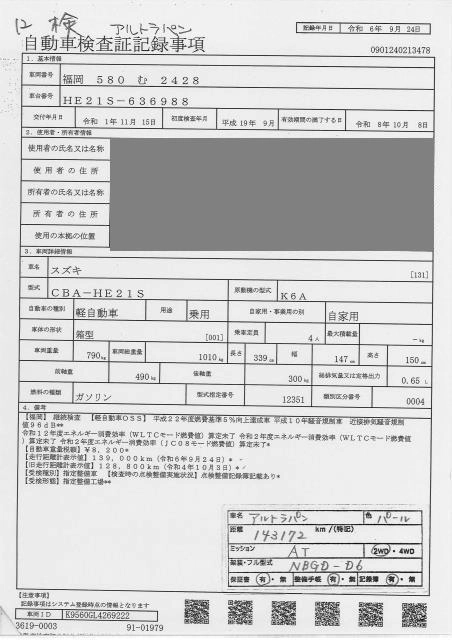 検 アルトラパン
記録年月日 令和 6年 9月 24日
自動車検査証記録事項
0901240213478
1. 基本情報
車両番号 福岡 580 む 2428
車台番号 HE21S-636988
交付年月日 令和 1年 11月 15日 初度検査年月 平成 19年 9月 有効期間の満了する日 令和 8年 10月 8日
2. 使用者・所有者情報
使用者の氏名又は名称
使用者の住所
所有者の氏名又は名称
所有者の住所
使用の本拠の位置
3. 車両詳細情報
車名 スズキ [131]
型式 CBA-HE21S 原動機の型式 K6A
自動車の種別 軽自動車 用途 乗用 自家用・事業用の別 自家用
車体の形状 箱型 [001] 乗車定員 4人 最大積載量 -kg
車両重量 790kg 車両総重量 1010kg 長さ 339cm 幅 147cm 高さ 150cm
前軸重 490kg 後軸重 300kg 総排気量又は定格出力 0.65 L
燃料の種類 ガソリン 型式指定番号 12351 類別区分番号 0004
4. 備考
【福岡】 継続検査 【軽自動車OSS】 平成22年度燃費基準5%向上達成車 平成10年騒音規制車 近接排気騒音規制
値96dB**
令和12年度エネルギー消費効率（WLTCモード燃費値）算定未了 令和2年度エネルギー消費効率（WLTCモード燃費値
）算定未了 令和2年度エネルギー消費効率（JC08モード燃費値）算定未了*
【自動車重量税額】¥8,200*
【走行距離計表示値】139,000km（令和6年9月24日）*
【旧走行距離計表示値】128,800km（令和4年10月3日）*
【受検種別】指定整備車 【検査時の点検整備実施状況】点検整備記録簿記載あり*
【受検形態】指定整備工場**
車名 アルトラパン 色 パール
距離 143172 km / (特記)
ミッション AT 2WD・4WD
架装・フル型式 NBGD-D6
保証書 有・無 整備手帳 有・無 記録簿 有・無
【注意事項】
記録事項はシステム登録時点の情報となります
車両ID K9560GL4269222
3619-0003 91-01979